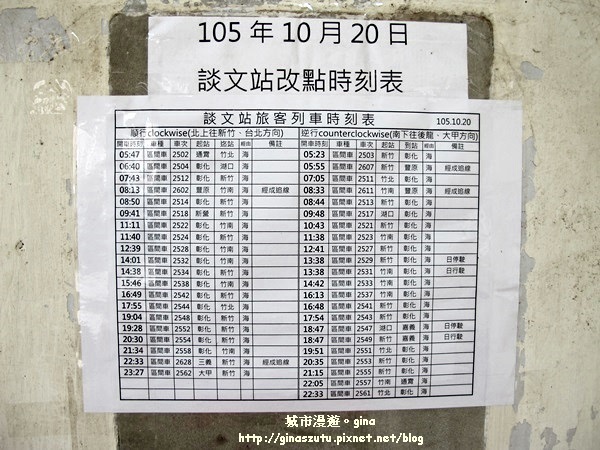 105 年 10 月 20 日
談文站改點時刻表
談文站旅客列車時刻表 105.10.20
順行clockwise(北上往新竹、台北方向) 逆行counterclockwise(南下往後龍、大甲方向)
開車時刻 車種 車次 起站 迄站 經由 備註 開車時刻 車種 車次 起站 到站 經由 備註
05:47 區間車 2502 通霄 竹北 海 05:23 區間車 2503 新竹 彰化 海
06:40 區間車 2504 彰化 湖口 海 05:55 區間車 2607 新竹 豐原 海 經成追線
07:43 區間車 2512 彰化 竹南 海 07:05 區間車 2511 竹北 彰化 海
08:13 區間車 2602 豐原 竹南 海 經成追線 08:33 區間車 2611 竹南 豐原 海 經成追線
08:50 區間車 2514 彰化 新竹 海 08:44 區間車 2513 新竹 彰化 海
09:41 區間車 2518 新營 新竹 海 09:48 區間車 2517 湖口 彰化 海
11:11 區間車 2522 彰化 竹南 海 10:43 區間車 2521 新竹 彰化 海
11:40 區間車 2524 彰化 新竹 海 11:38 區間車 2523 竹南 彰化 海
12:39 區間車 2528 彰化 竹南 海 12:41 區間車 2527 新竹 彰化 海
14:01 區間車 2532 彰化 竹南 海 13:38 區間車 2529 新竹 彰化 海 日停駛
14:38 區間車 2534 彰化 新竹 海 13:38 區間車 2531 竹南 彰化 海 日行駛
15:46 區間車 2538 彰化 竹南 海 14:42 區間車 2533 竹南 彰化 海
16:49 區間車 2542 彰化 新竹 海 16:13 區間車 2537 竹南 彰化 海
17:55 區間車 2544 彰化 竹北 海 16:48 區間車 2541 新竹 彰化 海
19:04 區間車 2548 彰化 新竹 海 17:54 區間車 2543 新竹 彰化 海
19:28 區間車 2552 彰化 新竹 海 18:47 區間車 2547 湖口 嘉義 海 日停駛
20:30 區間車 2554 彰化 新竹 海 18:47 區間車 2549 新竹 嘉義 海 日行駛
21:34 區間車 2558 彰化 竹南 海 19:51 區間車 2551 竹北 彰化 海
22:33 區間車 2628 三義 新竹 海 經成追線 20:35 區間車 2553 新竹 彰化 海
23:27 區間車 2562 大甲 新竹 海 21:15 區間車 2555 新竹 彰化 海
22:05 區間車 2557 竹南 通霄 海
22:33 區間車 2561 竹北 彰化 海
城市漫遊。gina
http://ginaszutu.pixnet.net/blog